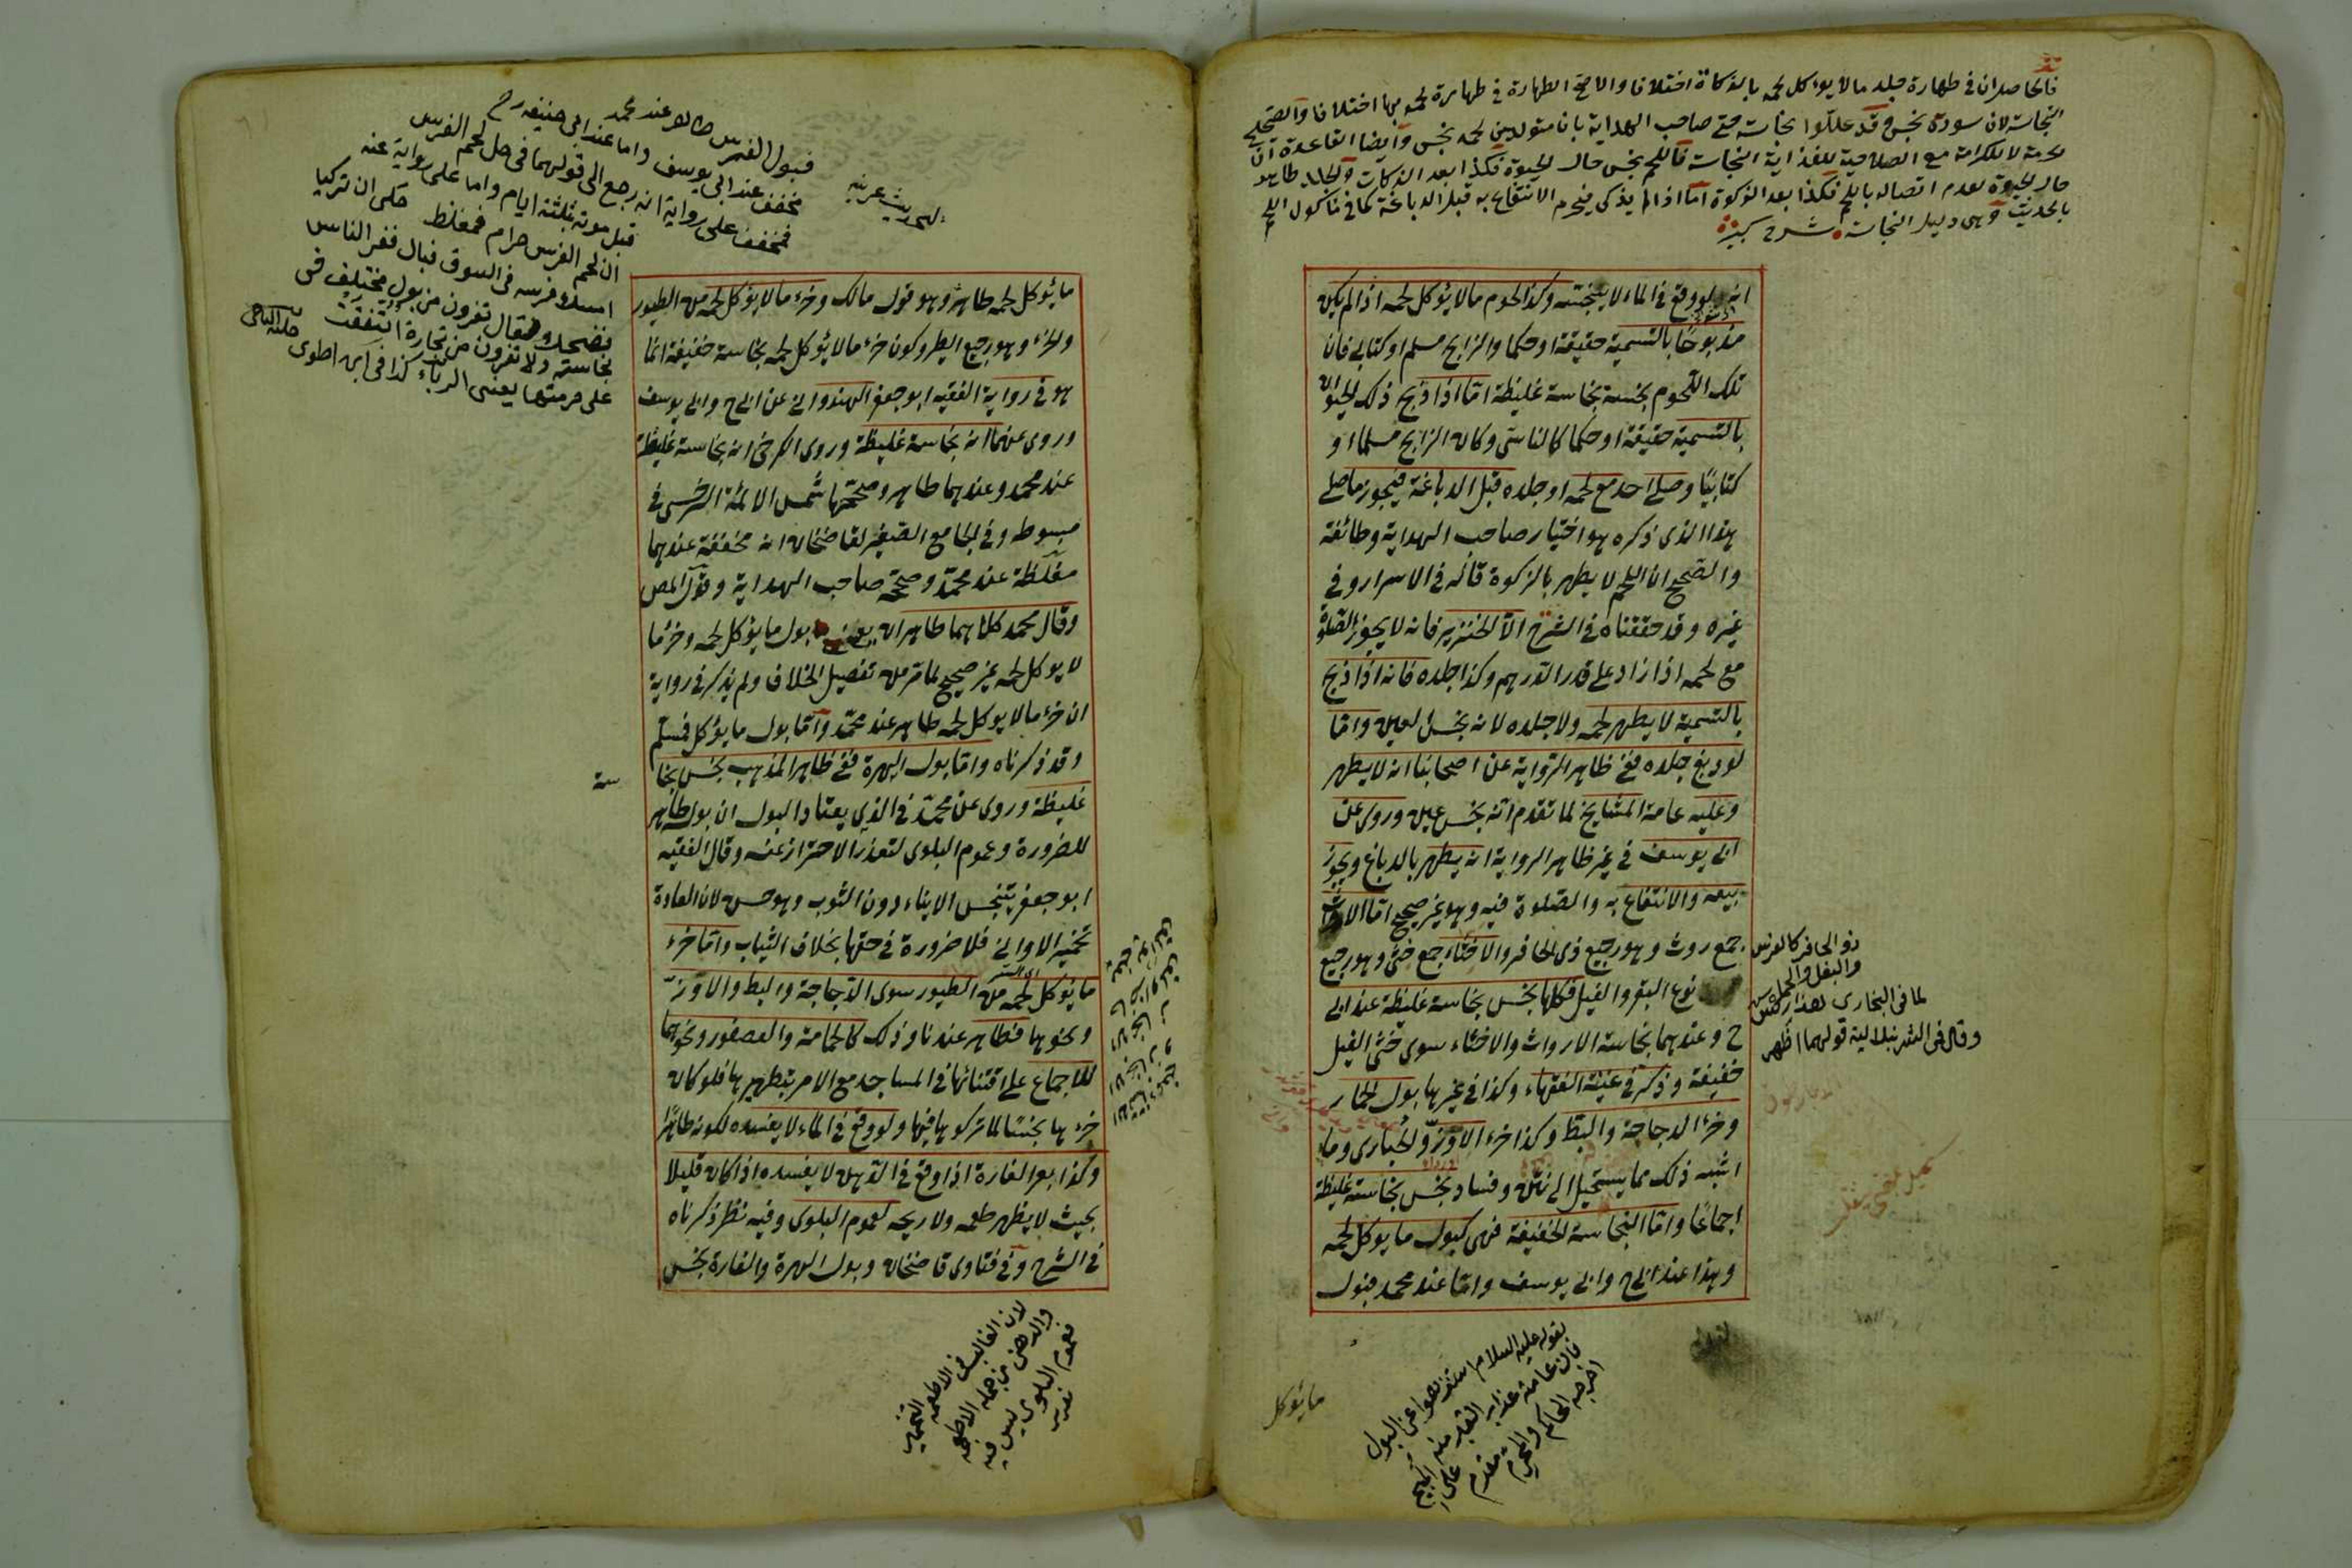 فالحاصل ان في طهارة جلد مالا يؤكل لحمه بالذكاة اختلافا والاصح الطهارة في طهارة لحمه بها اختلافا والصحيح
النجاسة لان سورة نجس وقد عللوا نجاسته حتى صاحب الهداية بانه متولد من لحمه نجس وايضا القاعدة ان
حرمة لا للكرامة مع الصلاحية للغذا آية النجاسة فاللحم نجس حال الحيوة فكذا بعد الذكاة والجلد طاهر
حال الحيوة لعدم اتصاله باللحم فكذا بعد الذكوة اما اذا لم يذكى فيحرم الانتفاع به قبل الدباغة كما في مأكول اللحم
بالحديث وهى دليل النجاسة شرح كبير
انه لو وقع في الماء لا ينجسه وكذا لحوم مالا يؤكل لحمه اذا لم يكن
مذبوحا بالتسمية حقيقة او حكما والذابح مسلم او كتابي فان
تلك اللحوم نجسة نجاسة غليظة اما اذا ذبح ذلك الحيوان
بالتسمية حقيقة او حكما كالناسي وكان الذابح مسلما او
كتابيا وصلى احد مع لحمه او جلده قبل الدباغة فيجوز ما صلى
هذا الذى ذكره هو اختيار صاحب الهداية وطائفة
والصحيح ان اللحم لا يطهر بالذكوة قاله في الاسرار وفي
غيره وقد حققناه في الشرح الا الخنزير فانه لا يجوز الصلوة
مع لحمه اذا زاد على قدر الدرهم وكذا جلده فانه اذا ذبح
بالتسمية لا يطهر لحمه ولا جلده لانه نجس العين واما
لو دبغ جلده ففي ظاهر الرواية عن اصحابنا انه لا يطهر
وعليه عامة المشايخ لما تقدم انه نجس عين وروى عن
ابي يوسف في غير ظاهر الرواية انه يطهر بالدباغ ويجوز
بيعه والانتفاع به والصلوة فيه وهو غير صحيح اما الارواث
جمع روث وهو رجيع ذى الحافر والاخثاء جمع خثى وهو رجيع
نوع البقر والفيل فكلها نجس نجاسة غليظة عند ابي
ح وعندهما نجاسة الارواث والاخثاء سوى خثى الفيل
خفيفة وذكر في غنية الفقهاء وكذا في غيرها بول الحمار
وخرء الدجاجة والبط وكذا خرء الاوز والحبارى وما
اشبه ذلك مما يستحيل الى نتن وفساد نجس نجاسة غليظة
اجماعا واما النجاسة الخفيفة فهى كبول ما يؤكل لحمه
وهذا عند ابي ح وابي يوسف واما عند محمد فبول
ذو الحافر كالفرس
والبغل والحمار
لما في البخارى هذا ركس
وقال في الشرنبلالية قولهما اظهر
لقوله عليه السلام استنزهوا عن البول
فان عامة عذاب القبر منه
اخرجه الحاكم والمحرم مقدم على المبيح
ما يؤكل
فبول الفرس طاهر عند محمد
مخفف عند ابي يوسف واما عند ابي حنيفة رح
فمخفف على رواية انه رجع الى قولهما في حل لحم الفرس
قبل موته بثلثة ايام واما على رواية عنه
ان لحم الفرس حرام فمغلظ حكى ان تركيا
امسك فرسه في السوق فبال ففر الناس
فضحك وقال تفرون من بول مختلف في
نجاسته ولا تفرون من تجارة اتفقت
على حرمتها يعنى الرباء كذا في ابن اطوى
لحديث عرنيه
ما يؤكل لحمه طاهر وهو قول مالك وخرء مالا يؤكل لحمه من الطيور
والخرء وهو رجيع الطير وكون خرء مالا يؤكل لحمه نجاسة خفيفة انما
هو في رواية الفقيه ابو جعفر الهندواني عن ابي ح وابي يوسف
وروى عنهما انه نجاسة غليظة وروى الكرخى انه نجاسة غليظة
عند محمد وعندهما طاهر وصححها شمس الائمة السرخسى في
مبسوطه وفي الجامع الصغير لقاضيخان انه مخففة عندهما
مغلظة عند محمد وصححه صاحب الهداية وقول المص
وقال محمد كلاهما طاهران يعنى بول ما يؤكل لحمه وخرء ما
لا يؤكل لحمه غير صحيح لما مر من تفصيل الخلاف ولم يذكر في رواية
ان خرء مالا يؤكل لحمه طاهر عند محمد واما بول ما يؤكل فمسلم
وقد ذكرناه واما بول الهرة ففي ظاهر المذهب نجس نجا
سة
غليظة وروى عن محمد في الذي يعتاد البول ان بوله طاهر
للضرورة وعموم البلوى لتعذر الاحتراز عنه وقال الفقيه
ابو جعفر يتنجس الاناء دون الثوب وهو حسن لان العادة
تخمير الاواني فلا ضرورة في حقها بخلاف الثياب واما خرء
ما يؤكل لحمه من الطيور سوى الدجاجة والبط والاوز
ونحوها فطاهر عندنا وذلك كالحمامة والعصفور ونحوهما
للاجماع على اقتنائها في المساجد مع الامر بتطهيرها فلو كان
خرءها نجسا لما تركوها فيها ولو وقع في الماء لا يفسده لكونه طاهرا
وكذا بعر الفارة اذا وقع في الدهن لا يفسده اذا كان قليلا
بحيث لا يظهر طعمه ولا ريحه لعموم البلوى وفيه نظر ذكرناه
في الشرح وفي فتاوى قاضيخان وبول الهرة والفارة نجس
لان الغالب في الاطعمة التخمير
والدهن من جملة الاطعمة
فعموم البلوى ليس فيه